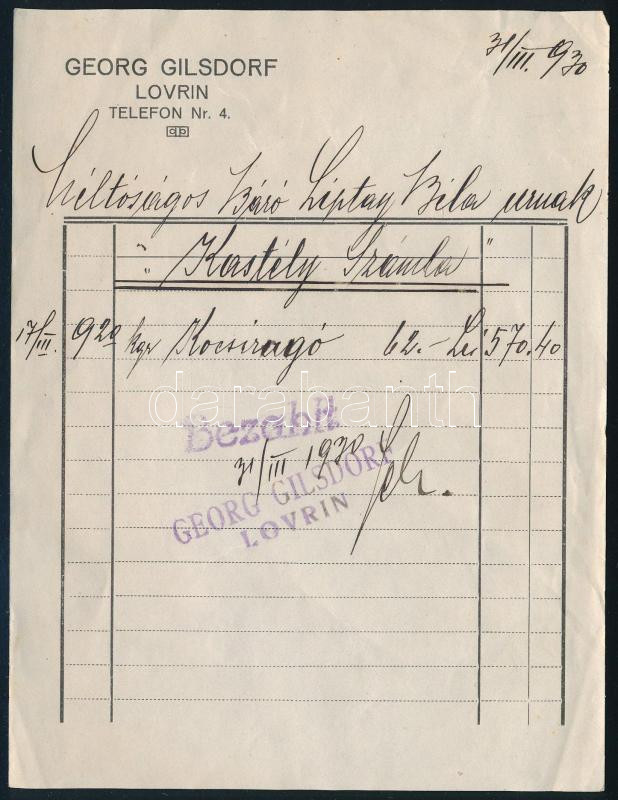 31/III. 930
GEORG GILSDORF
LOVRIN
TELEFON Nr. 4.
Méltóságos Báró Liptay Béla urnak
„ Kastély Számla "
17/III. 9 20 kgr Kocsiragó 62.- Lei 570.40
darabanth
Bezahlt
31/III 1930
GEORG GILSDORF
LOVRIN